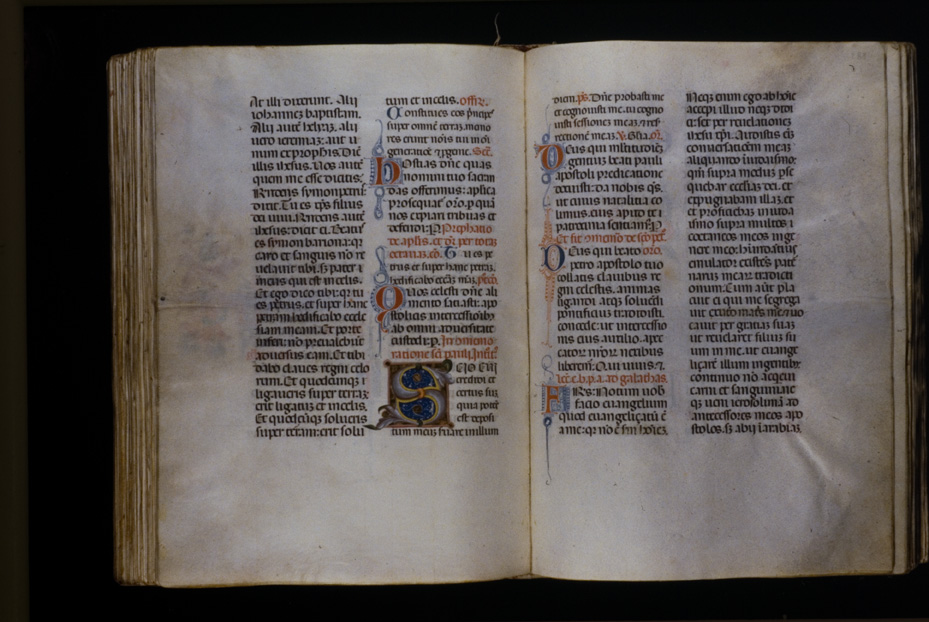 At illi dixerunt. Alii
iohannem baptistam.
Alii autē helyaz. alii
uero ieremiaz: aut u
num ex prophis. Dic̄
illis ihesus. Uos autē
quem me esse dicitis.
Rn̄dens symon petr̄
dixit. Tu es xp̄s filius
dei uiui. Rn̄dens autē
ihesus: dixit ei. Beat᷒
es symon bariona: qr̄
caro et sanguis nō re
uelauit tibi. sʒ pater
meus qui est in celis.
Et ego dico tibi: qr̄ tu
es petrus. et super hanc
petram hedificabo eccle
siam meam. Et porte
inferi: nō preualebūt
aduersus eam. Et tibi
dabo claues regni celo
rum. Et quodcunqʒ
ligaueris super terrā:
erit ligatū et in celis.
Et quodcūqʒ solueris
super terram: erit solu
tum et in celis. Offr̄.
Constitues eos p̄ncipes
super omnē terraz. memo
res erunt nōis tui in ōi
generatiōe ⁊ ḡgene. Sec̄.
Hostias dn̄e quas
nomini tuo sacran
das offerimus: apl̄ica
prosequat᷒ or̄o. p quā
nos expiari tribuas et
defendi: P. Prephatio
de apl̄is. et
Tu es pe
trus et super hanc petraz.
hedificabo eccl̄iā meā.
Quos celesti dn̄e ali
mento satiasti: apo
stolicis intercessiōibʒ
ab omni aduersitate
custodi: p. In comemo
ratione sc̄i pauli. Introit᷒.
SCIO CUI
credidi et
certus suʒ
quia potēs
est deposi
tum meuʒ seruare in illum
diem. p̄s. Dn̄e probasti me
et cognouisti me. tu cogno
uisti sessionez meaz. ⁊ res̄
rectionē meaz. V. Gl̄ia. or̄.
Deus qui multitudinē
gentiuʒ beati pauli
apostoli predicatione
docuisti: da nobis q̄s.
ut cuius natalitia co
limus. eius apud te
patrocinia sentiam᷒. P.
Et fit ꝯmemō de sc̄o pet̄.
Deus qui beato oro.
petro apostolo tuo
collatis clauibus re
gni celestis. animas
ligandi atqʒ soluendi
pontificiuʒ tradidisti.
concede: ut intercessio
nis eius auxilio. apec
catorʒ nr̄orʒ nexibus
liberem᷒. Qui uiuis ⁊.
lec̄c. b. p. a. ad galathas.
FRs: Notum uob
facio euangelium
quod euangelizatū ē
a me: qr̄ nō ē sm̄ hoīez.
Neqʒ enim ego ab hoīe
accepi illud neqʒ didi
ci: set per reuelationez
ih̄esu xp̄i. Audistis ēi
conuersationem meaz
aliquando in iudaismo:
qm̄ supra moduz pse
quebar ecclesiaz dei. et
expugnabam illaz. et
et proficiebaz in iuda
ismo supra multos
coetaneos meos in ge
nere meo: habundātius
emulator existēs pat̄e
narum mearʒ traditi
onum. Cum autē pla
cuit ei qui me segrega
uit ex utero matris mee ⁊ uo
cauit per gratiaʒ suaʒ
ut reuelaret filiuʒ su
um in me. ut euange
lizarē illum in gentibʒ:
continuo nō acqeui
carni et sanguini. ne
qʒ ueni ierosolimā ad
antecessores meos apo
stolos. sʒ abii i arabiaz.